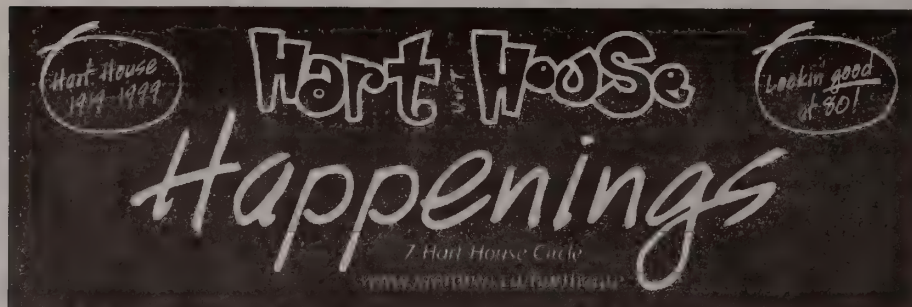 Hart House
1919-1999
Hart House
Lookin' good
at 80!
Happenings
7 Hart House Circle